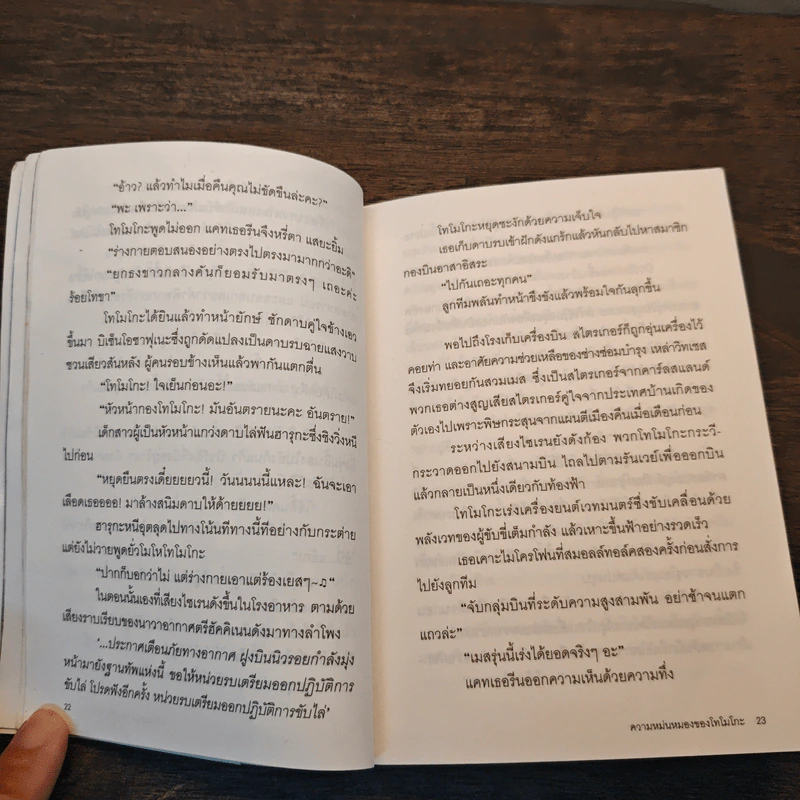 "อ้าว? แล้วทำไมเมื่อคืนคุณไม่ขัดขืนล่ะคะ?"
"พะ เพราะว่า..."
โทโมโกะพูดไม่ออก แคทเธอรีนจึงหรี่ตา แสยะยิ้ม
"ร่างกายตอบสนองอย่างตรงไปตรงมามากกว่าอะดิ"
"ยกธงขาวกลางคันก็ยอมรับมาตรงๆ เถอะค่ะ
ร้อยโทขา"
โทโมโกะได้ยินแล้วทำหน้ายักษ์ ชักดาบคู่ใจข้างเอว
ขึ้นมา บิเซ็นโอซาฟุเนะซึ่งถูกดัดแปลงเป็นดาบรบฉายแสงวาบ
ชวนเสียวสันหลัง ผู้คนรอบข้างเห็นแล้วพากันแตกตื่น
"โทโมโกะ! ใจเย็นก่อนอะ!"
"หัวหน้ากองโทโมโกะ! มันอันตรายนะคะ อันตราย!"
เด็กสาวผู้เป็นหัวหน้าแกว่งดาบไล่ฟันฮารุกะซึ่งชิงวิ่งหนี
ไปก่อน
"หยุดยืนตรงเดี๋ยยยยวนี้! วันนนนนี้แหละ! ฉันจะเอา
เลือดเธอออออ! มาล้างสนิมดาบให้ด้ายยยย!"
ฮารุกะหนีอุตลุดไปทางโน้นทีทางนี้ทีอย่างกับกระต่าย
แต่ยังไม่วายพูดยั่วโมโหโทโมโกะ
"ปากก็บอกว่าไม่ แต่ร่างกายเอาแต่ร้องเยสๆ~♫"
ในตอนนั้นเองที่เสียงไซเรนดังขึ้นในโรงอาหาร ตามด้วย
เสียงราบเรียบของนาวาอากาศตรีฮัคคิเนนดังมาทางลำโพง
'...ประกาศเตือนภัยทางอากาศ ฝูงบินนิวรอยกำลังมุ่ง
หน้ามายังฐานทัพแห่งนี้ ขอให้หน่วยรบเตรียมออกปฏิบัติการ
ขับไล่ โปรดฟังอีกครั้ง หน่วยรบเตรียมออกปฏิบัติการขับไล่'
22
โทโมโกะหยุดชะงักด้วยความเจ็บใจ
เธอเก็บดาบรบเข้าฝักดังแกร๊กแล้วหันกลับไปหาสมาชิก
กองบินอาสาอิสระ
"ไปกันเถอะทุกคน"
ลูกทีมพลันทำหน้าขึงขังแล้วพร้อมใจกันลุกขึ้น
พอไปถึงโรงเก็บเครื่องบิน สไตรเกอร์ก็ถูกอุ่นเครื่องไว้
คอยท่า และอาศัยความช่วยเหลือของช่างซ่อมบำรุง เหล่าวิทเชส
จึงเริ่มทยอยกันสวมเมส ซึ่งเป็นสไตรเกอร์จากคาร์ลสแลนด์
พวกเธอต่างสูญเสียสไตรเกอร์คู่ใจจากประเทศบ้านเกิดของ
ตัวเองไปเพราะพิษกระสุนจากแผนตีเมืองคืนเมื่อเดือนก่อน
ระหว่างเสียงไซเรนยังดังก้อง พวกโทโมโกะกระวี-
กระวาดออกไปยังสนามบิน ไถลไปตามรันเวย์เพื่อออกบิน
แล้วกลายเป็นหนึ่งเดียวกับท้องฟ้า
โทโมโกะเร่งเครื่องยนต์เวทมนตร์ซึ่งขับเคลื่อนด้วย
พลังเวทของผู้ขับขี่เต็มกำลัง แล้วเหาะขึ้นฟ้าอย่างรวดเร็ว
เธอเคาะไมโครโฟนที่สมอลล์ทอล์คสองครั้งก่อนสั่งการ
ไปยังลูกทีม
"จับกลุ่มบินที่ระดับความสูงสามพัน อย่าช้าจนแตก
แถวล่ะ"
"เมสรุ่นนี้เร่งได้ยอดจริงๆ อะ"
แคทเธอรีนออกความเห็นด้วยความทึ่ง
ความหม่นหมองของโทโมโกะ 23